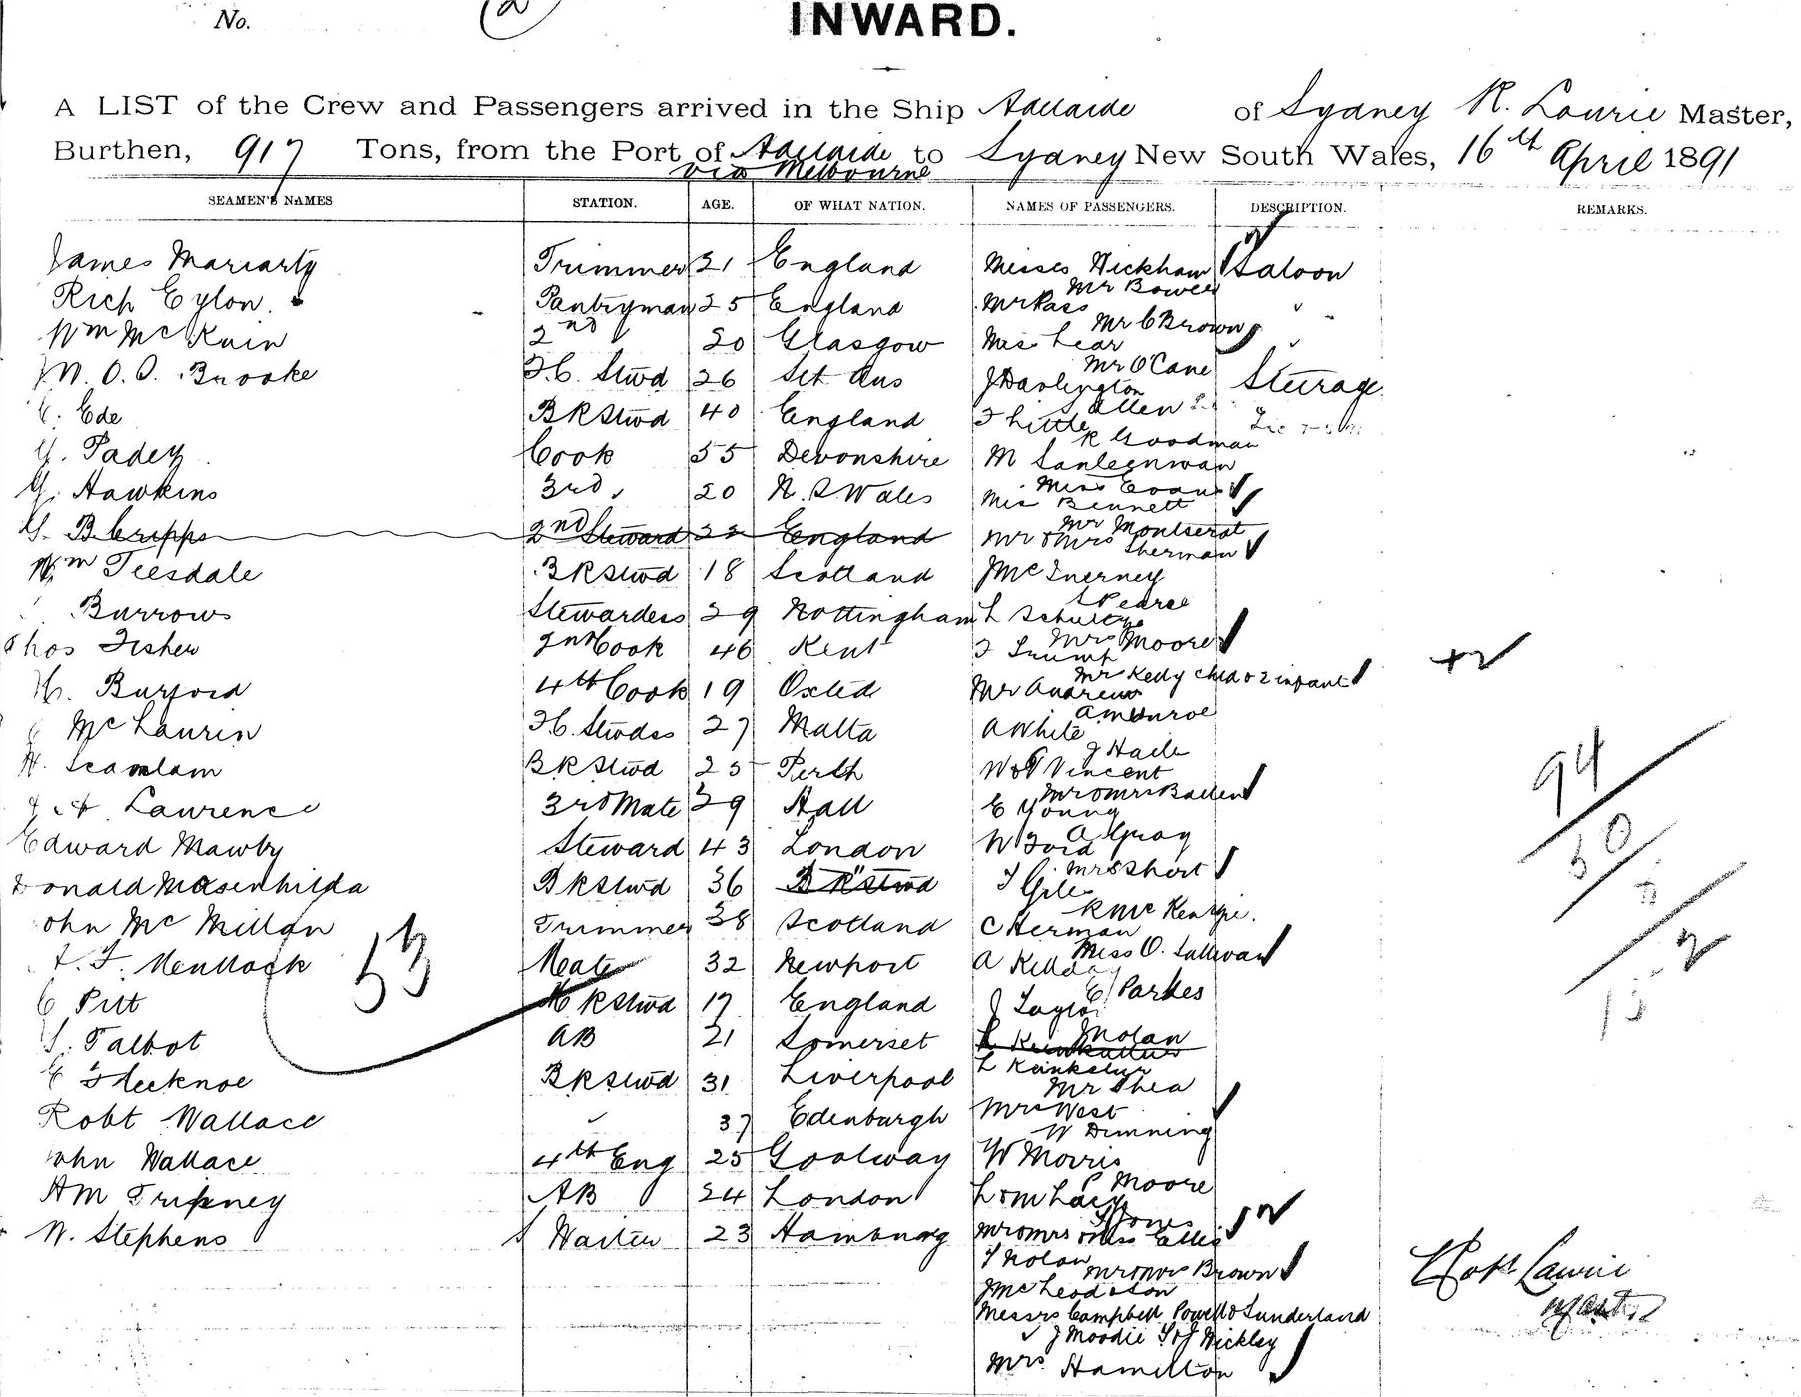 No. 2
INWARD.
A LIST of the Crew and Passengers arrived in the Ship Adelaide of Sydney R. Laurie Master,
Burthen, 917 Tons, from the Port of Adelaide to Sydney New South Wales, 16th April 1891
via Melbourne
SEAMEN'S NAMES STATION. AGE. OF WHAT NATION. NAMES OF PASSENGERS. DESCRIPTION. REMARKS.
James Mariarty Trimmer 21 England Misses Wickham Saloon
Mr Bowee
Rich Eylon Pantryman 25 England Mr Pass
Mr C Brown
Wm McKain 2nd 20 Glasgow Mis Lear
Mr O'Cane
W. O. O. Brooke F.C. Stwd 26 Sth Aus J Darlington Steerage
S Allen
C. Ede BK Stwd 40 England T Little
R Goodman
G. Padey Cook 55 Devonshire M
Miss Evans
G. Hawkins 3rd 20 N. S Wales Mis Bennett
Mr Montserat
G. B Cripps 2nd Steward 22 England Mr & Mrs Sherman
Wm Teesdale BK Stwd 18 Scotland J McInerney
S Pearce
Burrows Stewardess 29 Nottingham L Schultze
Mrs Moore
Thos Fisher 2nd Cook 46 Kent T Trump
Mr Kelly child & 2 infant
H. Burford 4th Cook 19 Oxted Mr Andrews
A Munroe
McLaurin F.C. Stwdss 27 Malta A White
J Haile
H. Scamlam BK Stwd 25 Perth W & T Vincent
Mr & Mrs Ballen
A Lawrence 3rd Mate 29 Hall E Young
A Gray
Edward Mawby Steward 43 London W Ford
Mrs Short
Donald Masenhilda BK Stwd 36 BK Stwd T Giles
R McKenzie.
John McMillan Trimmer 38 Scotland C Herman
Miss O. Sullivan
53
Mate 32 Newport A
E Parkes
C Pitt BK Stwd 17 England J Taylor
Nolan
S. Talbot AB 21 Somerset
E Fleeknoe BK Stwd 31 Liverpool L
Mr Shea
Robt Wallace 37 Edinburgh Mrs West
W Dinning
John Wallace 4th Eng 25 Goalway W Morris
P Moore
AM Tripney AB 24 London L & M Lacy
T Jones
W. Stephens Waiter 23 Hamburg Mr & Mrs & Miss Ellis
T Nolan
Mr & Mrs Brown
J McLeod & Son
Messrs Campbell Powell & Sunderland
J Moodie T & J Wickley
Mrs Hamilton
94
50
2
Robt Laurie
Master